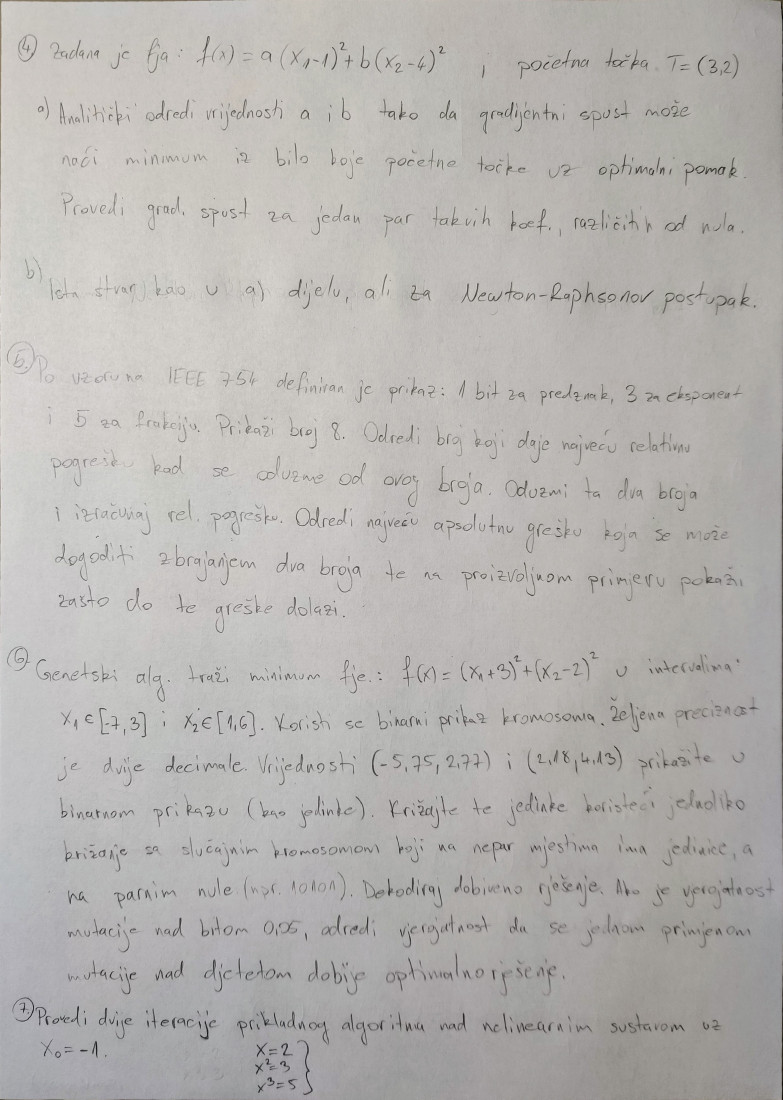 ④ Zadana je fja: f(x) = a(x₁-1)² + b(x₂-4)² , početna točka. T = (3,2)
a) Analitički odredi vrijednosti a i b tako da gradijentni spust može
naći minimum iz bilo koje početne točke uz optimalni pomak.
Provedi grad. spust za jedan par takvih koef., različitih od nula.
b)
Ista stvar kao u a) dijelu, ali za Newton-Raphsonov postupak.
⑤ Po uzoru na IEEE 754 definiran je prikaz: 1 bit za predznak, 3 za eksponent
i 5 za frakciju. Prikaži broj 8. Odredi broj koji daje najveću relativnu
pogrešku kad se oduzme od ovog broja. Oduzmi ta dva broja
i izračunaj rel. pogrešku. Odredi najveću apsolutnu grešku koja se može
dogoditi zbrajanjem dva broja te na proizvoljnom primjeru pokaži
zašto do te greške dolazi.
⑥ Genetski alg. traži minimum fje.: f(x) = (x₁+3)² + (x₂-2)² u intervalima:
x₁ ∈ [-7,3] i x₂ ∈ [1,6]. Koristi se binarni prikaz kromosoma. Željena preciznost
je dvije decimale. Vrijednosti (-5,75, 2,77) i (2,18, 4,13) prikažite u
binarnom prikazu (kao jedinke). Križajte te jedinke koristeći jednoliko
križanje sa slučajnim kromosomom koji na nepar mjestima ima jedinice, a
na parnim nule (npr. 10101). Dekodiraj dobiveno rješenje. Ako je vjerojatnost
mutacije nad bitom 0,05, odredi vjerojatnost da se jednom primjenom
mutacije nad djetetom dobije optimalno rješenje.
⑦ Provedi dvije iteracije prikladnog algoritma nad nelinearnim sustavom uz
x₀ = -1. x=2 }
x²=3
x³=5